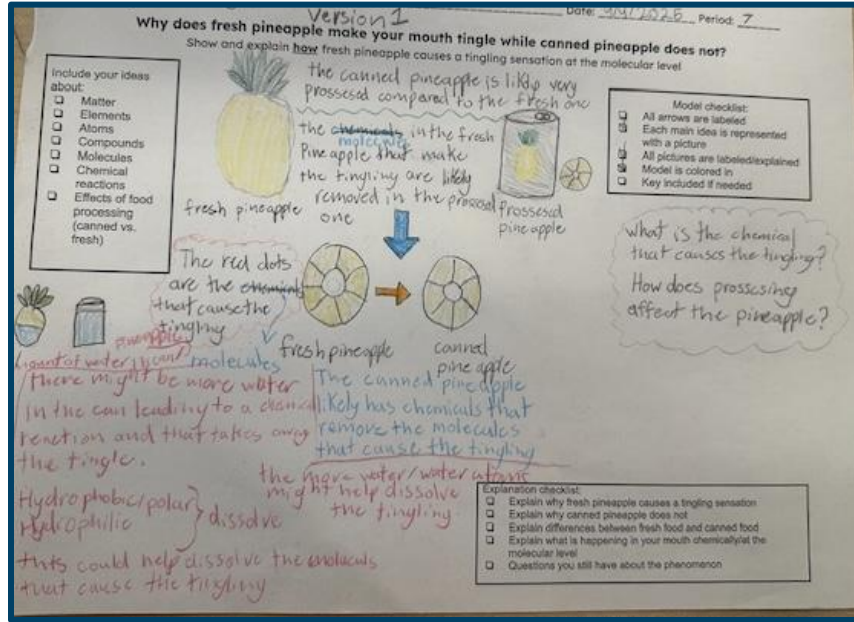 Version 1
Date: 9/9/2025 Period: 7
Why does fresh pineapple make your mouth tingle while canned pineapple does not?
Show and explain how fresh pineapple causes a tingling sensation at the molecular level
Include your ideas
about:
Matter
Elements
Atoms
Compounds
Molecules
Chemical
reactions
Effects of food
processing
(canned vs.
fresh)
the canned pineapple is likly very
prossesed compared to the fresh one
the chemicals in the fresh
molecules
Pineapple that make
the tingling are likely
removed in the prossesed
one
fresh pineapple
prossesed
pineapple
Model checklist:
All arrows are labeled
Each main idea is represented
with a picture
All pictures are labeled/explained
Model is colored in
Key included if needed
what is the chemical
that causes the tingling?
How does prossesing
affect the pineapple?
The red dots
are the chemicals
that cause the
tingling
molecules
fresh pineapple
canned
pineapple
pineapple
of water
there might be more water
in the can leading to a chemical
reaction and that takes away
the tingle.
The canned pineapple
likely has chemicals that
remove the molecules
that cause the tingling
the more water/water atoms
might help dissolve
the tingling
Hydrophobic/polar
Hydrophilic
dissolve
this could help dissolve the molecules
that cause the tingling
Explanation checklist:
Explain why fresh pineapple causes a tingling sensation
Explain why canned pineapple does not
Explain differences between fresh food and canned food
Explain what is happening in your mouth chemically/at the
molecular level
Questions you still have about the phenomenon